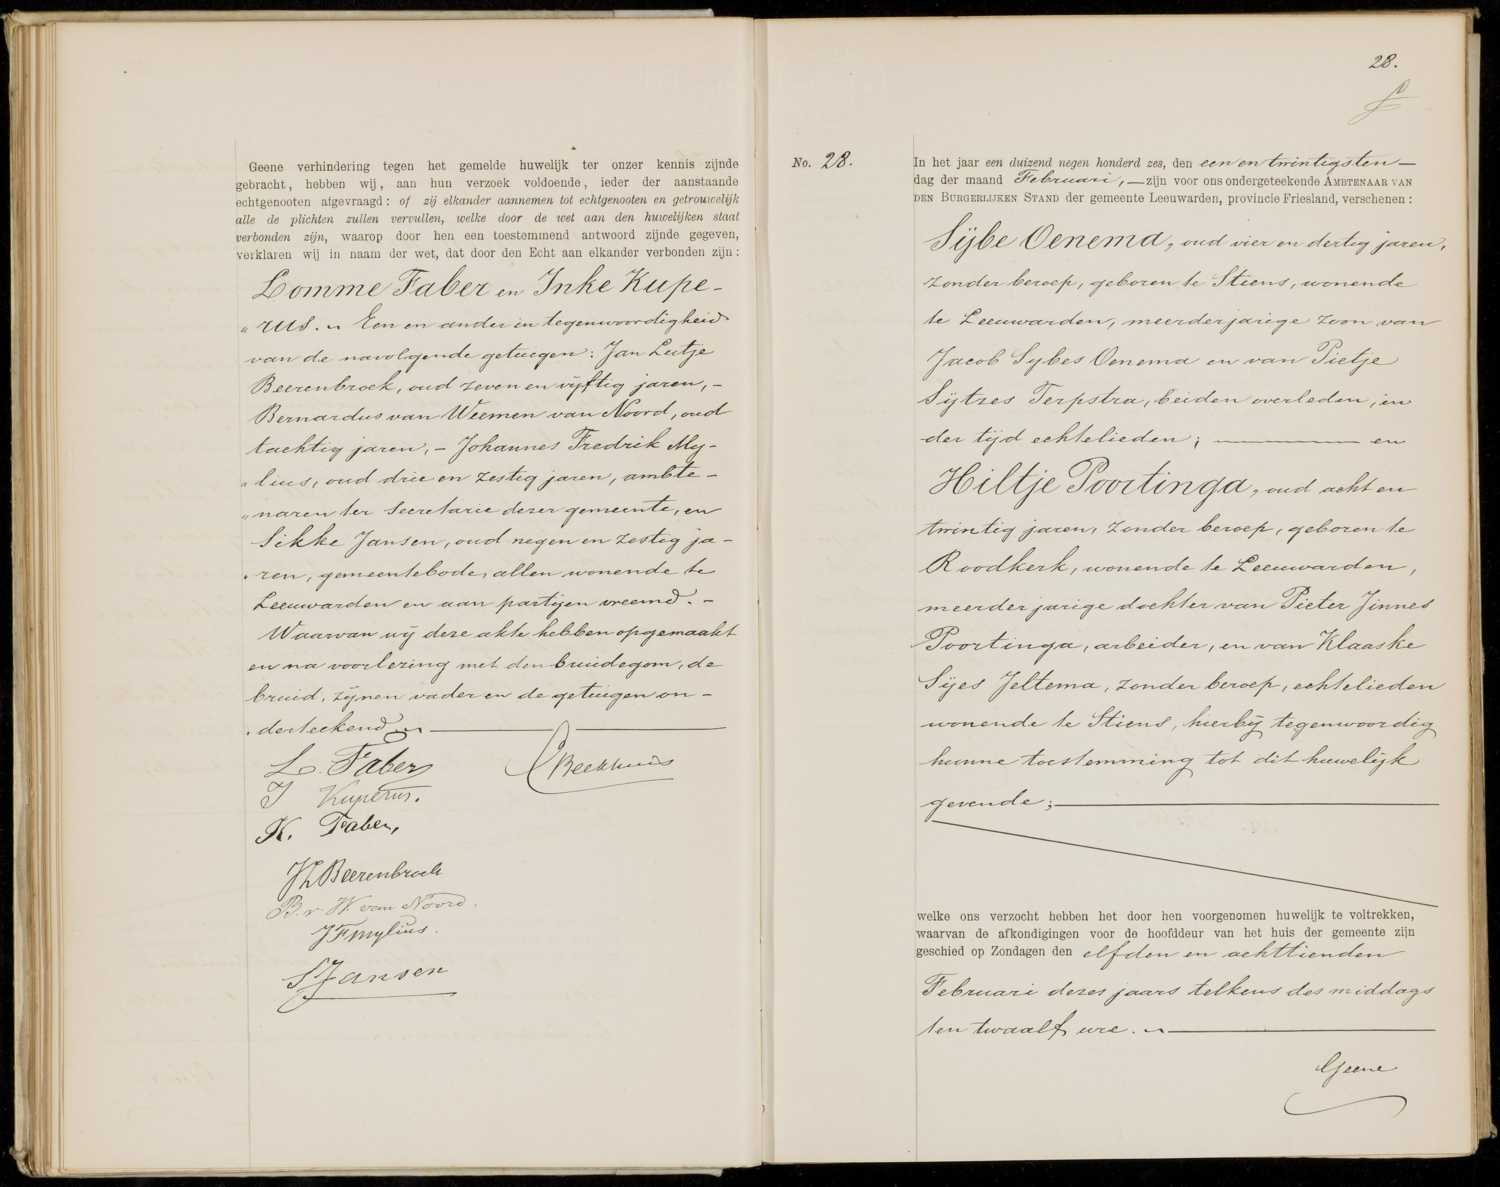 Geene verhindering tegen het gemelde huwelijk ter onzer kennis zijnde
gebracht, hebben wij, aan hun verzoek voldoende, ieder der aanstaande
echtgenooten afgevraagd: of zij elkander aannemen tot echtgenooten en getrouwelijk
alle de plichten zullen vervullen, welke door de wet aan den huwelijken staat
verbonden zijn, waarop door hen een toestemmend antwoord zijnde gegeven,
verklaren wij in naam der wet, dat door den Echt aan elkander verbonden zijn:
Lomme Faber en Inke Kupe-
„rus. Een en ander in tegenwoordigheid
van de navolgende getuigen: Jan Lutje
Beerenbroek, oud zeven en vijftig jaren, -
Bernardus van Weemen van Noord, oud
tachtig jaren, - Johannes Fredrik My-
„lius, oud drie en zestig jaren, ambte-
„naren ter secretarie dezer gemeente, en
Sikke Jansen, oud negen en zestig ja-
„ren, gemeentebode, allen wonende te
Leeuwarden en aan partijen vreemd. -
Waarvan wij deze akte hebben opgemaakt
en na voorlezing met den bruidegom, de
bruid, zijnen vader en de getuigen on-
„derteekend
L. Faber
CBeekhuis
I Kuperus.
K. Faber,
JLBeerenbroek
B. v W. van Noord.
JFMylius.
SJansen
28.
No. 28.
In het jaar een duizend negen honderd zes, den een en twintigsten —
dag der maand Februari, — zijn voor ons ondergeteekende AMBTENAAR VAN
DEN BURGERLIJKEN STAND der gemeente Leeuwarden, provincie Friesland, verschenen:
Sijbe Oenema, oud vier en dertig jaren,
zonder beroep, geboren te Stiens, wonende
te Leeuwarden, meerderjarige zoon van
Jacob Sybes Oenema en van Pietje
Sijtzes Terpstra, beiden overleden, in
der tijd echtelieden; — en
Hiltje Poortinga, oud acht en
twintig jaren, zonder beroep, geboren te
Roodkerk, wonende te Leeuwarden,
meerderjarige dochter van Pieter Jinnes
Poortinga, arbeider, en van Klaaske
Sijes Jeltema, zonder beroep, echtelieden
wonende te Stiens, hierbij tegenwoordig
hunne toestemming tot dit huwelijk
gevende; —
welke ons verzocht hebben het door hen voorgenomen huwelijk te voltrekken,
waarvan de afkondigingen voor de hoofddeur van het huis der gemeente zijn
geschied op Zondagen den elfden en achttienden
Februari dezes jaars telkens des middags
ten twaalf ure. —
Geene